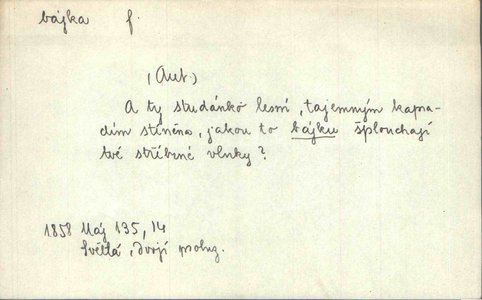 bájka f.
(Aut.)
A ty studánko lesní, tajemným kapra-
dím stíněna, jakou to bájku šplouchají
tvé stříbrné vlnky?
1858 Máj 135, 14
Světlá, Dvojí probuz.